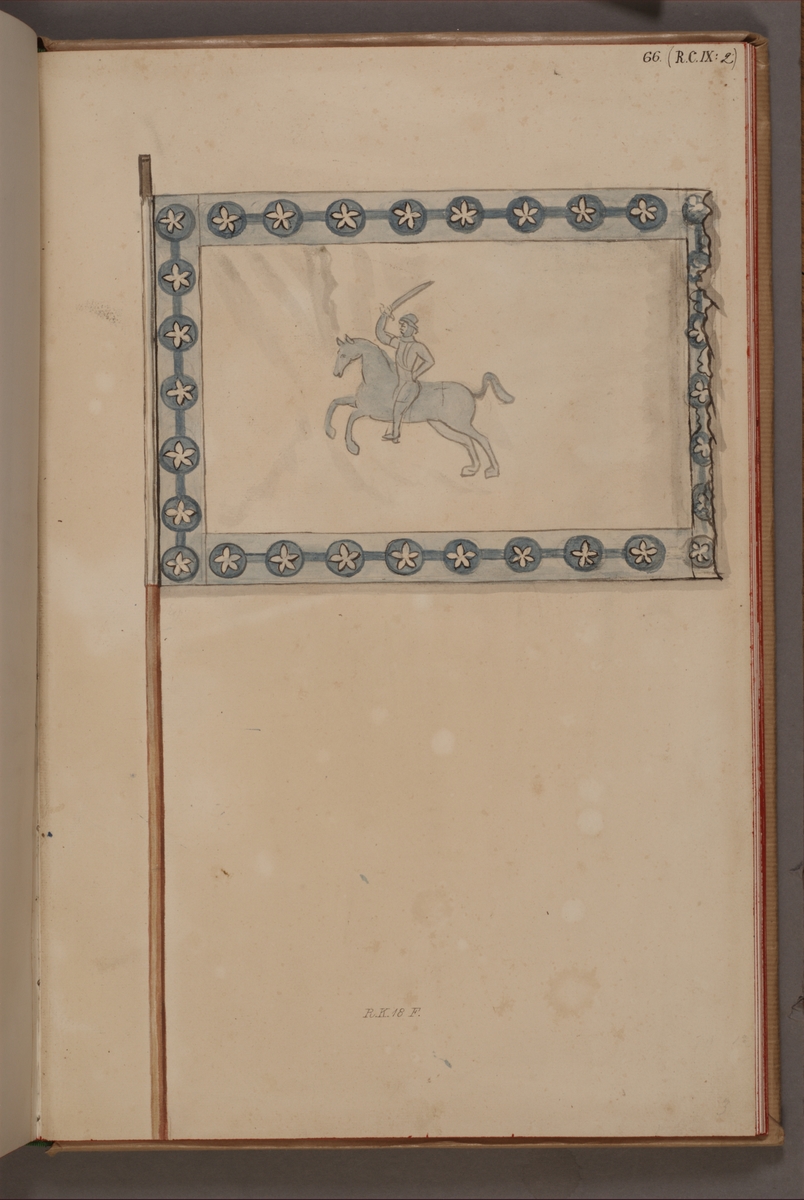 66. (R.C.IX: 2)
R.K. 18 F.